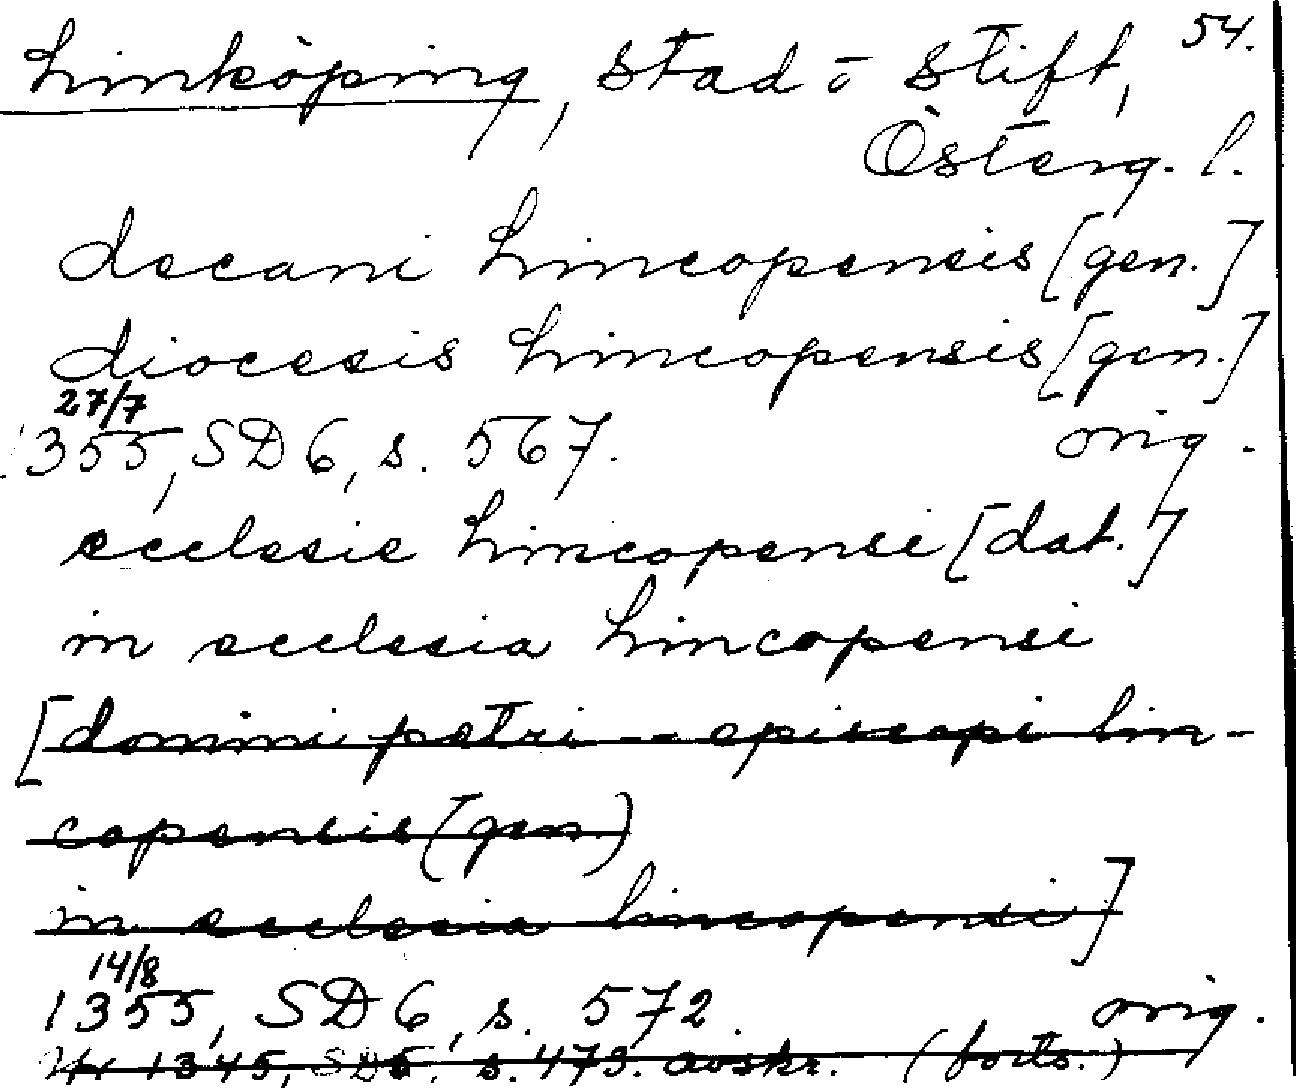 54.
Linköping, stad o stift,
Österg. l.
decani lincopensis [gen.]
diocesis lincopensis [gen.]
27/7
1355, SD 6, s. 567. orig.
ecclesie lincopensi [dat.]
in ecclesia lincopensi
[domini petri -- episcopi lin-
copensis (gen.)
in ecclesia lincopensi]
14/8
1355, SD 6, s. 572. orig.
1345, SD5, s. 473. avskr. (forts.)